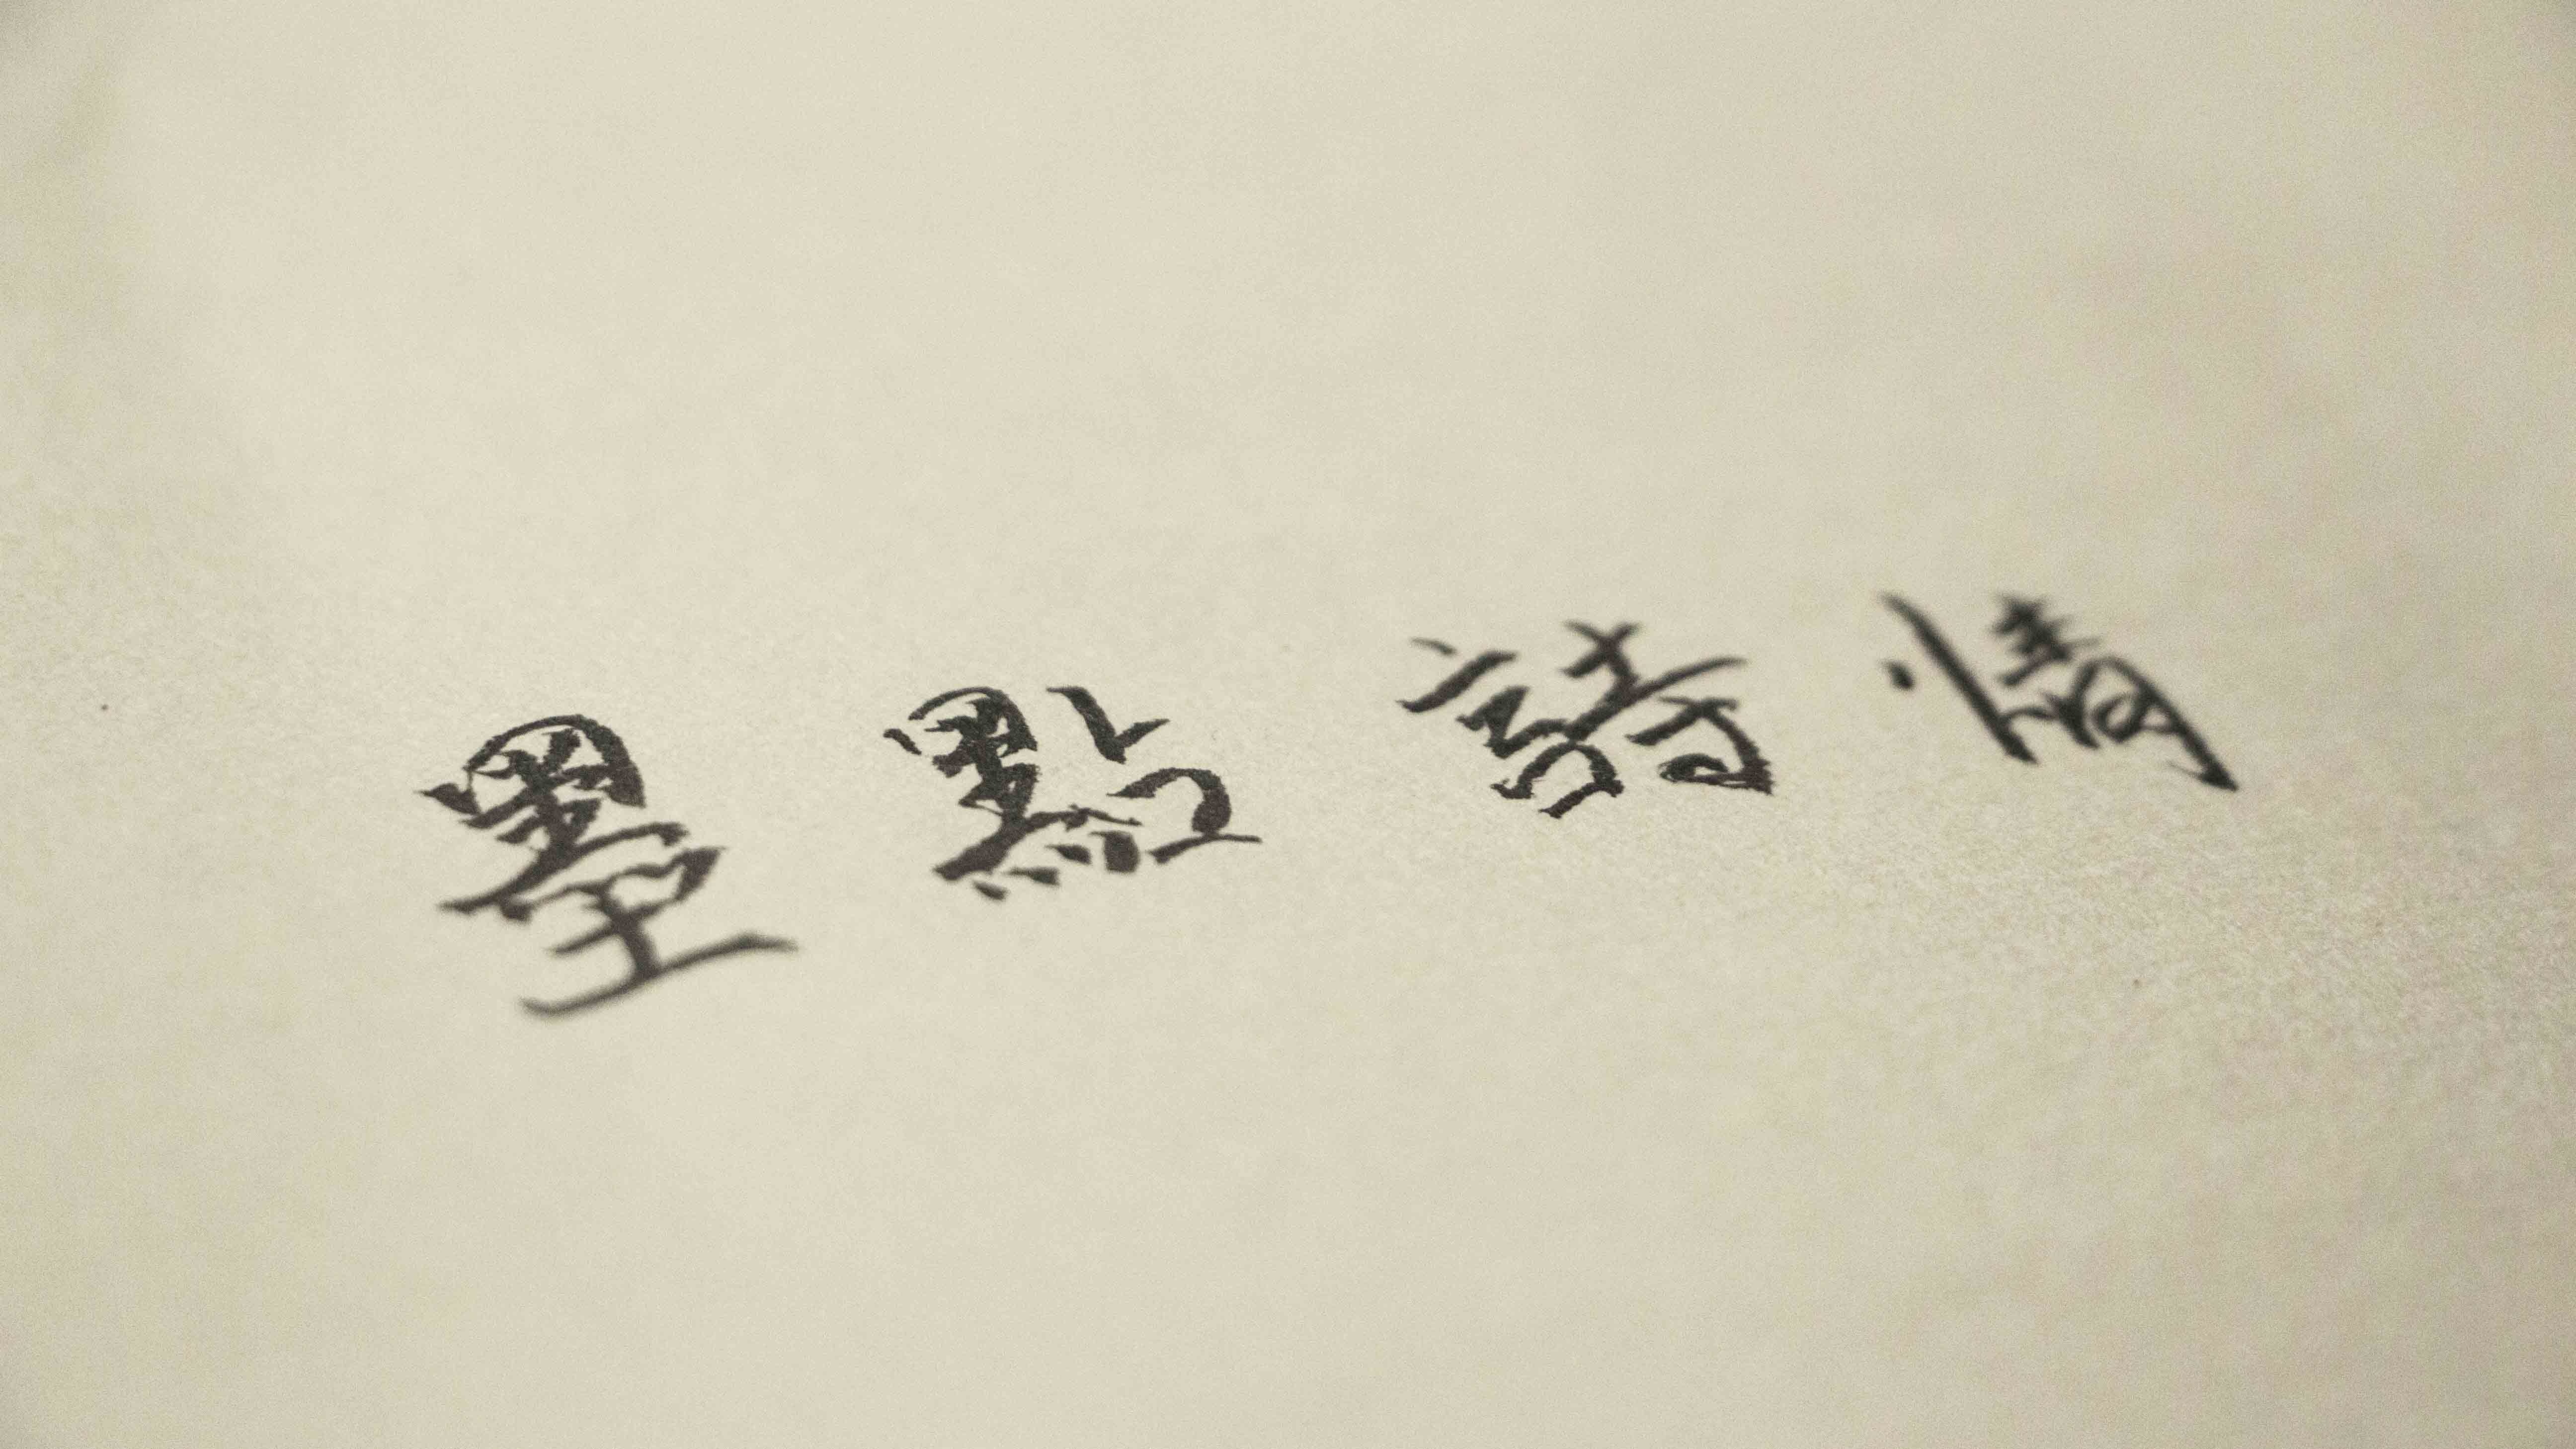 墨點詩情